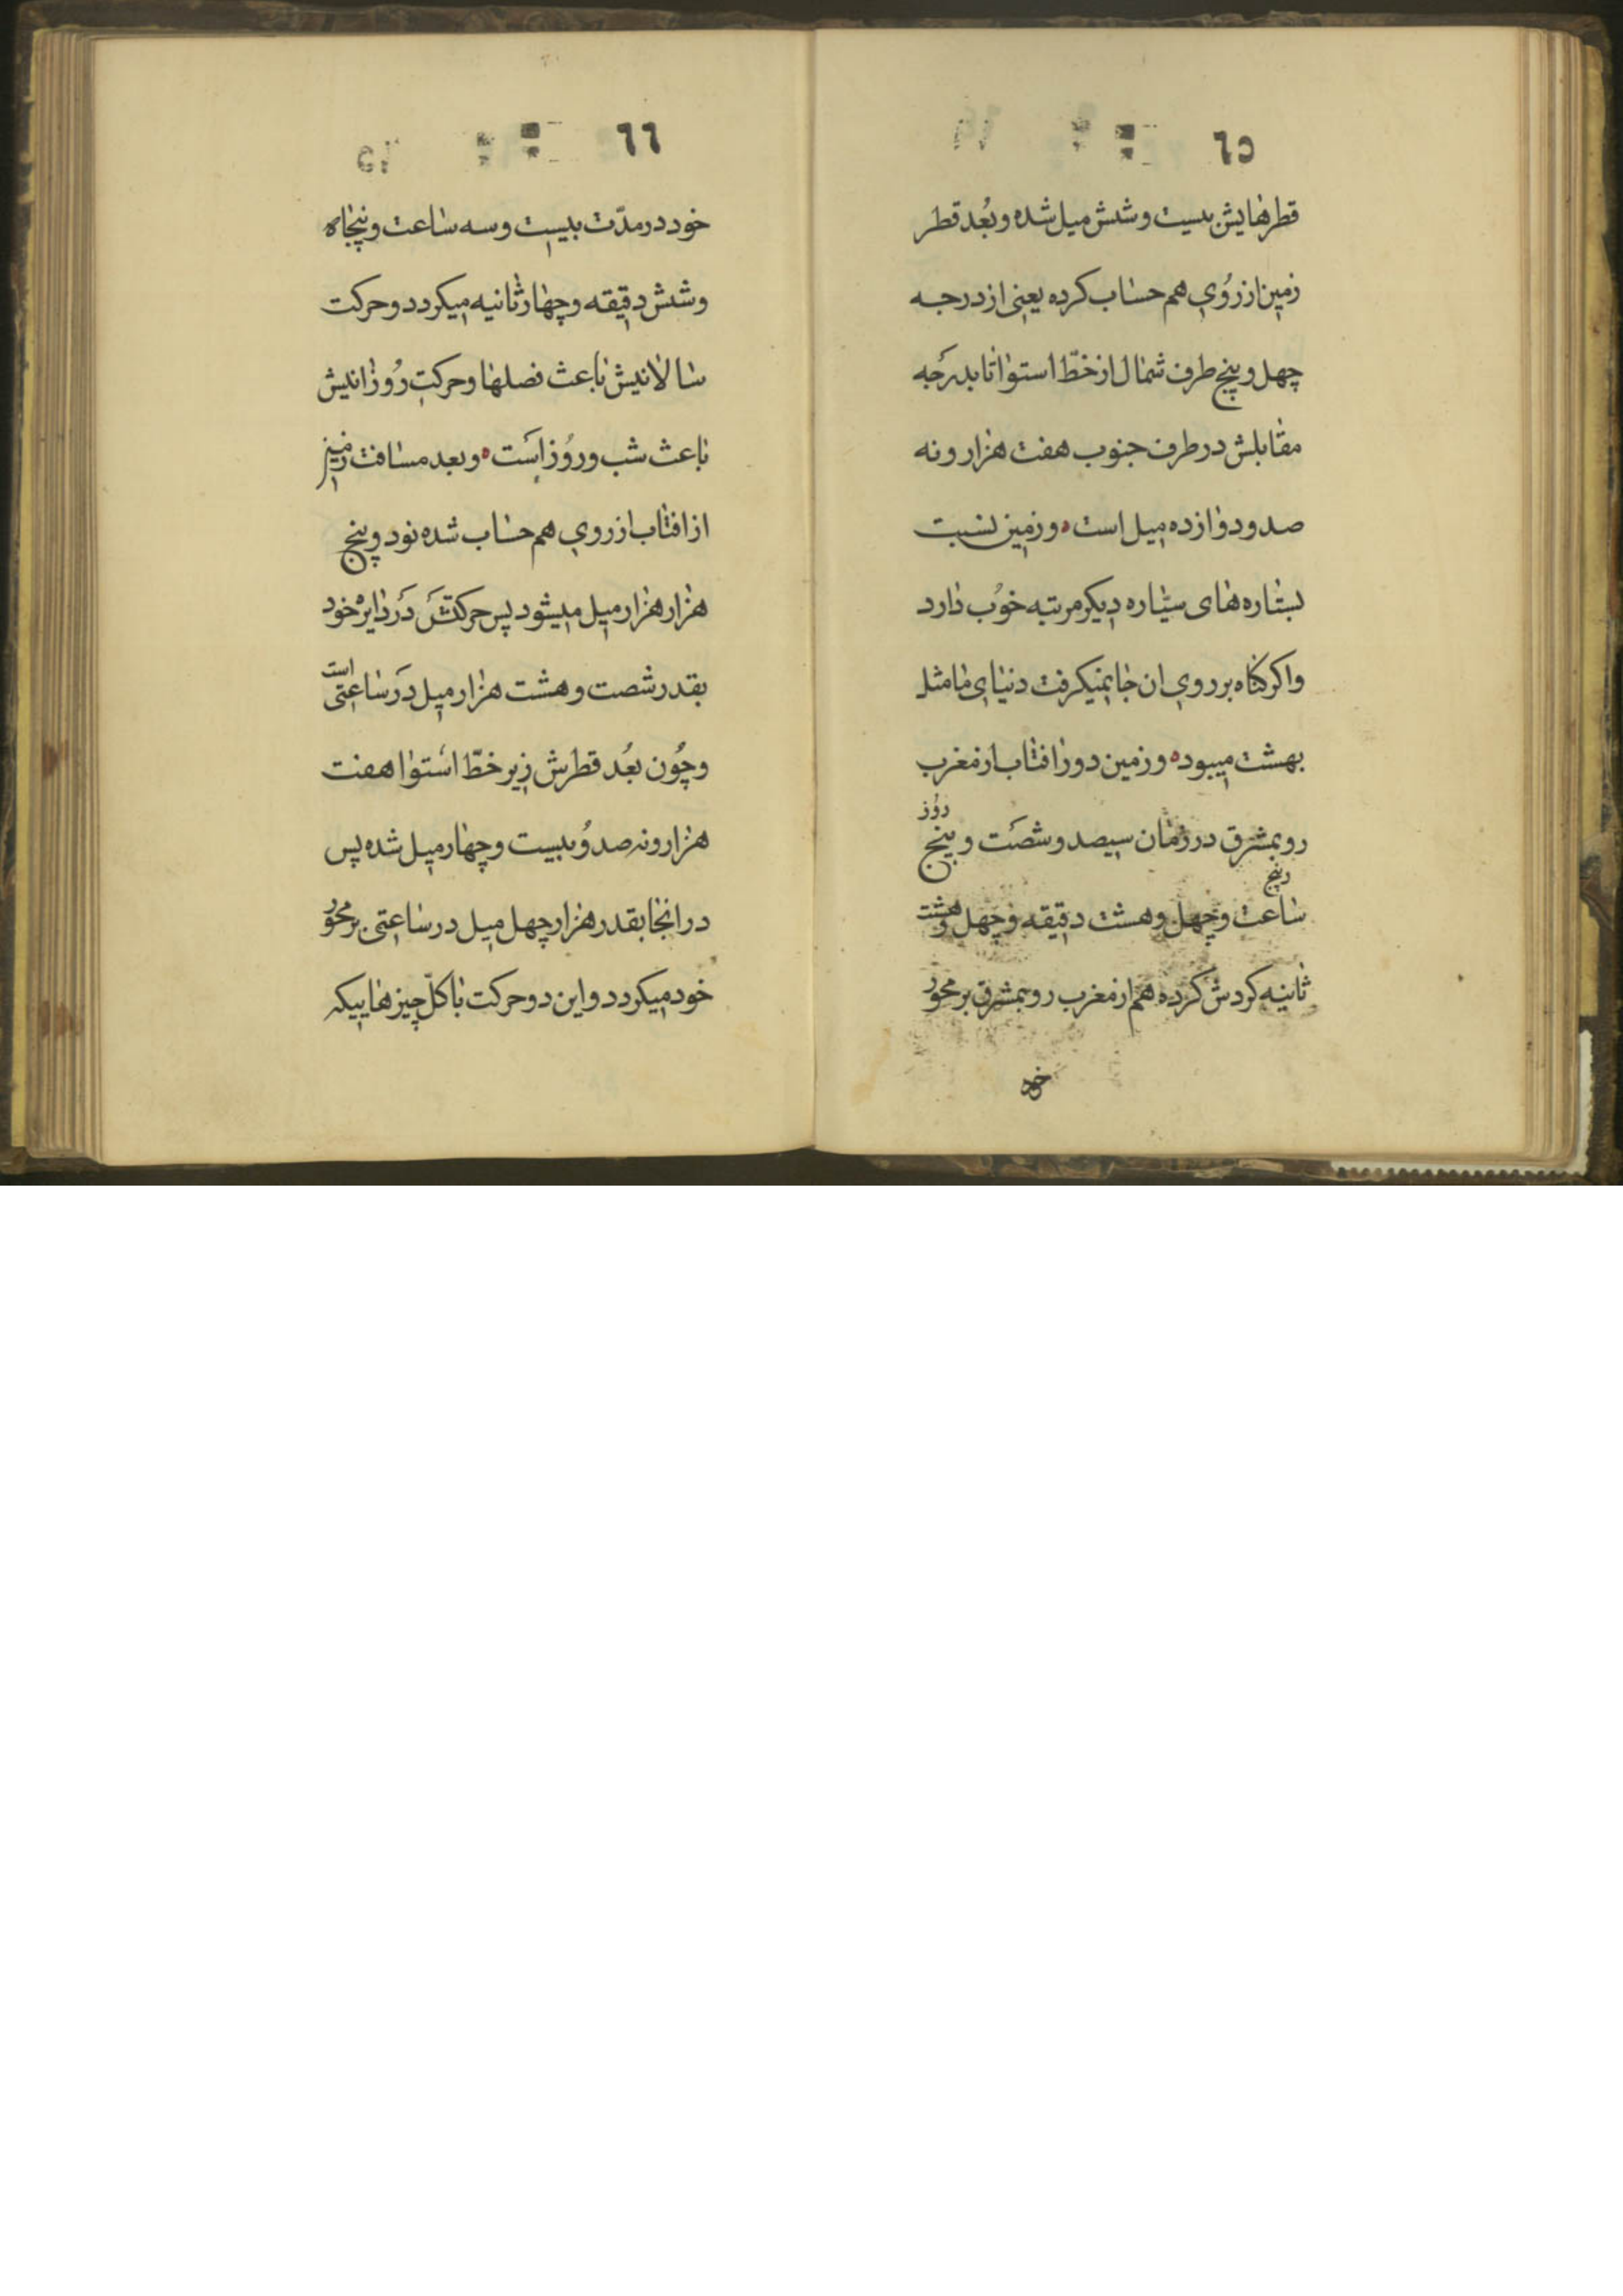 ٦٥
قطرهایش بیست و شش میل شده و بُعد قطر
زمین از رُوی هم حساب کرده یعنی از درجه
چهل و پنج طرف شمال از خطّ استوا تا بدرَجه
مقابلش در طرف جنوب هفت هزار و نه
صد و دوازده میل است ه و زمین نسبت
بستاره‌های سیّاره دیکر مرتبه خوُب دارد
و اکر کناه بر روی ان جا نمیکرفت دنیای ما مثل
بهشت میبود ه و زمین دور افتاب از مغرب
رو بمشرق در زمان سیصد و شصَت و پنج روُز
و پنج
ساعت و چهل و هشت دقیقه و چهل و هشت
ثانیه کردش کرده هم از مغرب رو بمشرق بر محور
خود
٦٦
خود در مدّت بیست و سه ساعت و پنجاه
و شش دقیقه و چهار ثانیه میکردد و حرکت
سالانیش باعث فصلها و حرکتِ رُوزانیش
باعث شب و روُز اسَت ه و بعد مسافت زمین
از افتاب از روی هم حساب شده نود و پنج
هزار هزار میل میشود پس حرکتشَ دَر دایره خود
بقدر شصت و هشت هزار میل دَر ساعتی است
و چُون بُعد قطرش زیر خطّ اسُتوا هفت
هزار و نه صد وُ بیست و چهار میل شده پس
در انجا بقدر هزار چهل میل در ساعتی بر محور
خود میکردد و این دو حرکت با کلّ چیزهاییکه